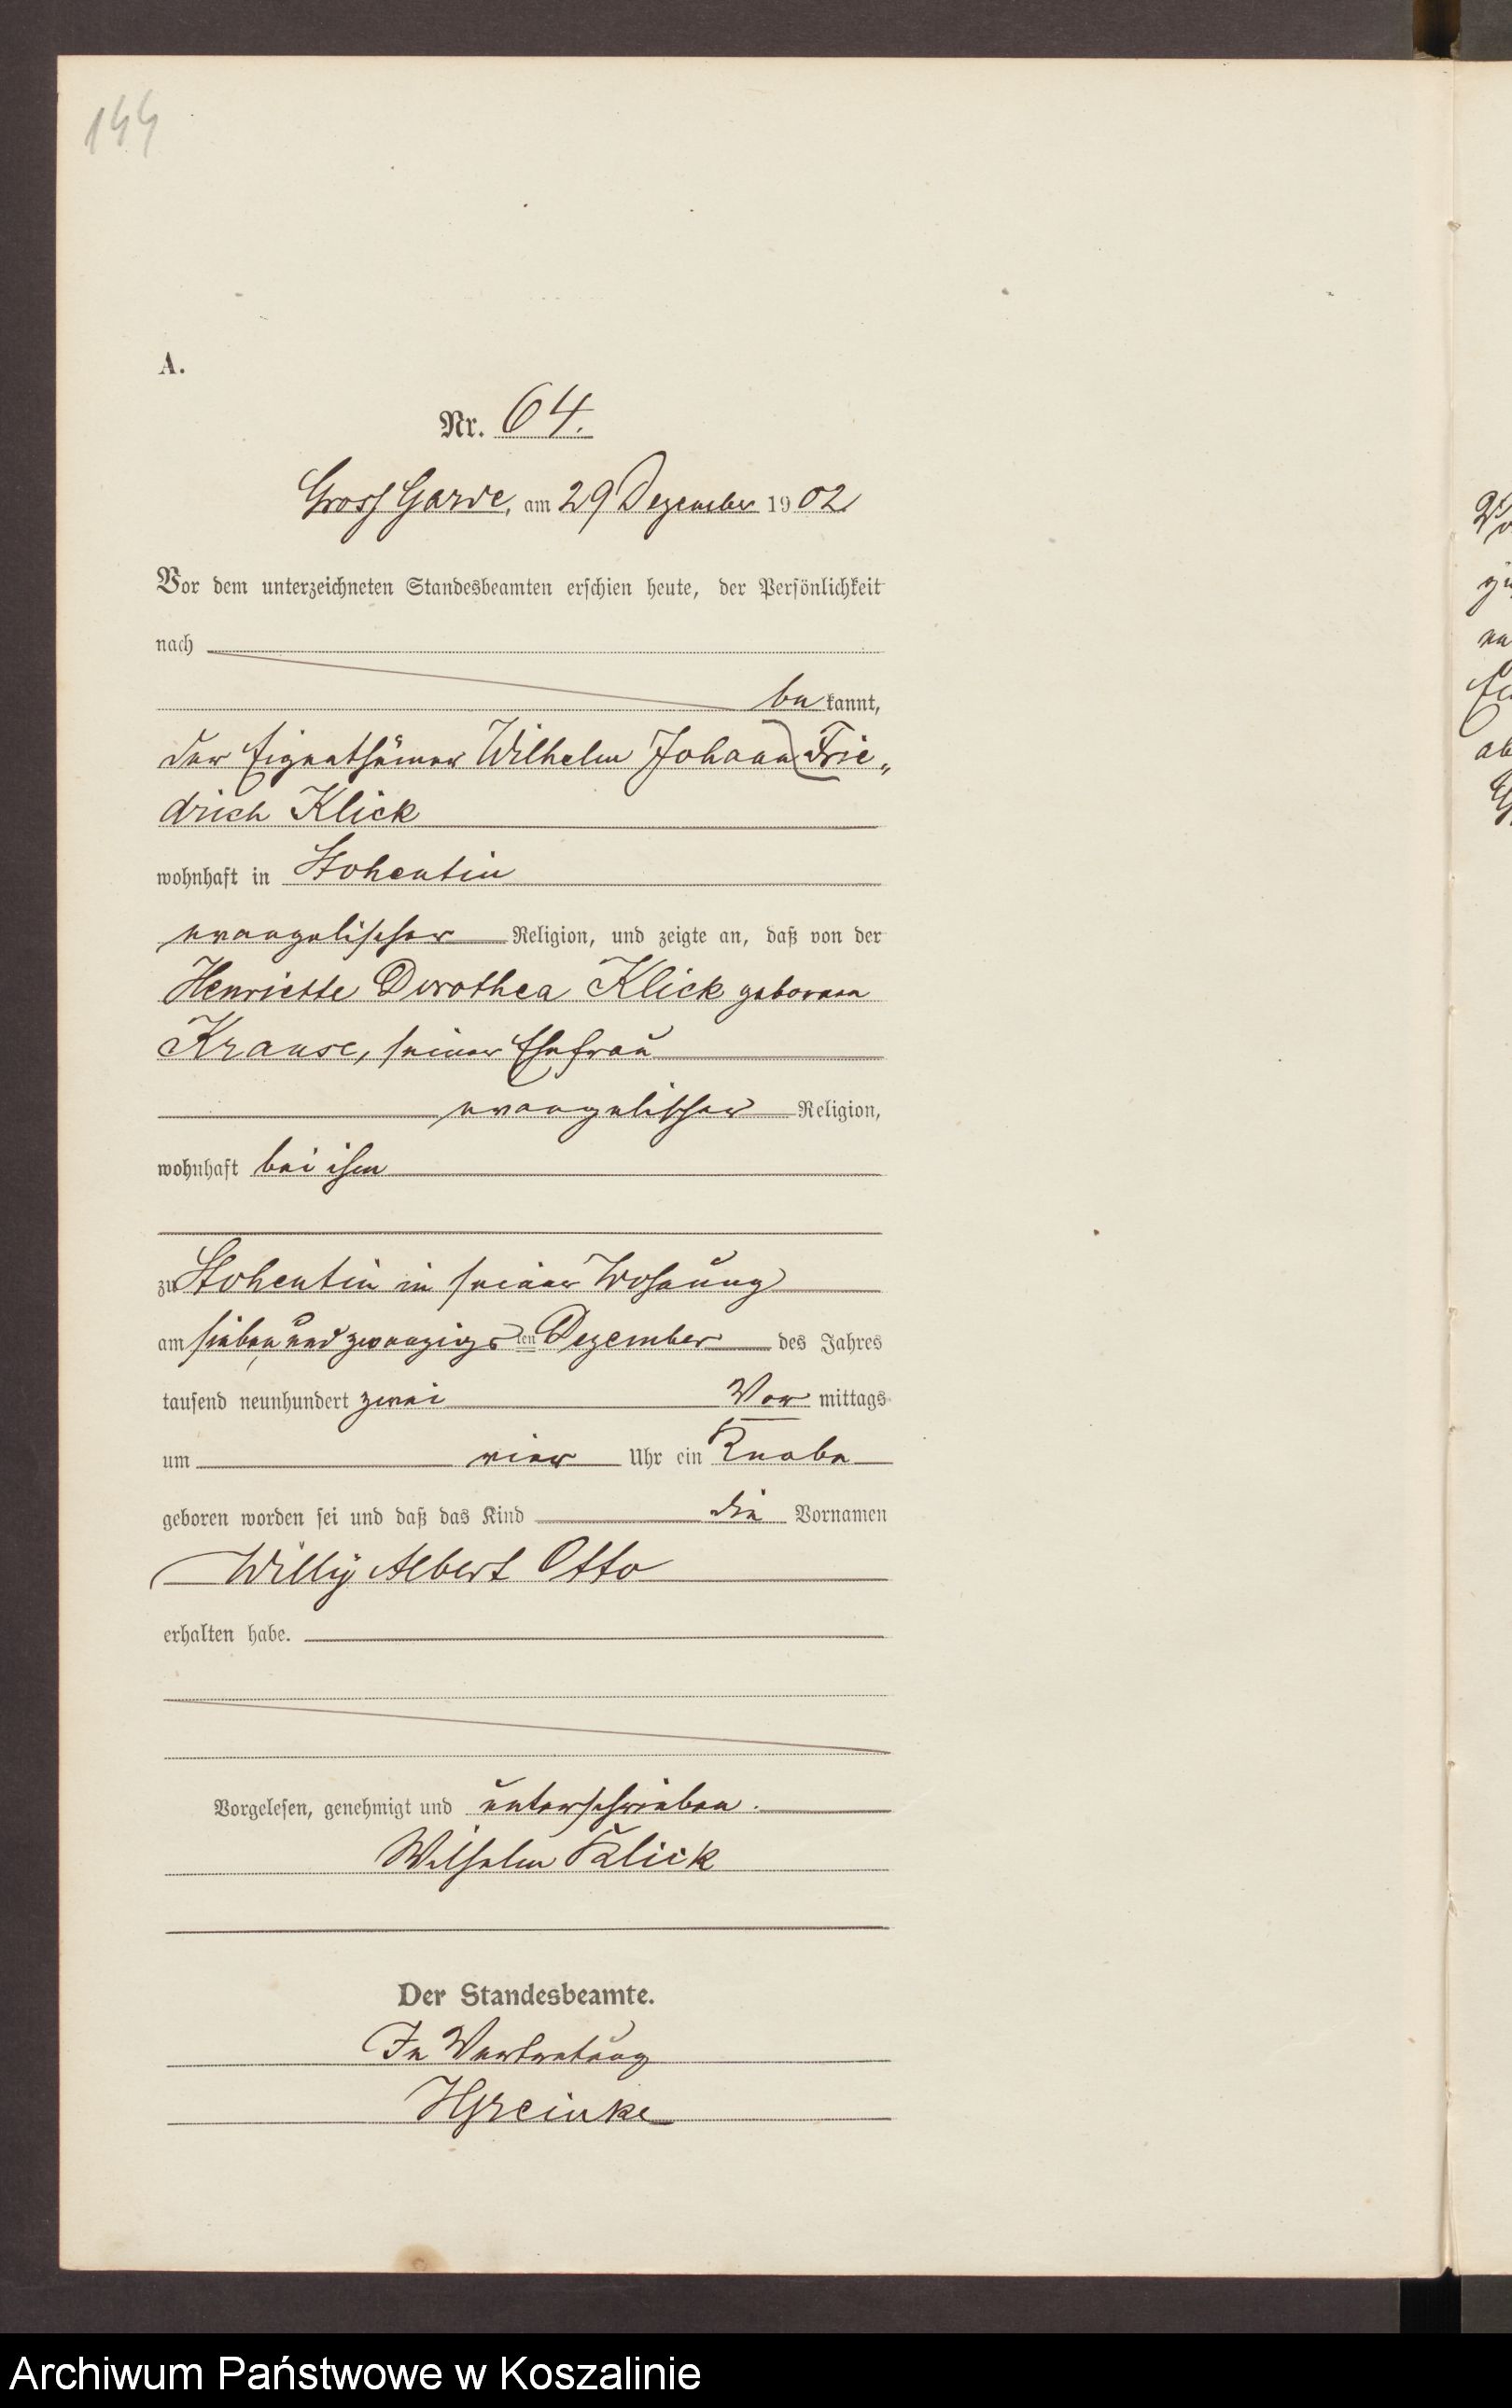 144
A.
Nr. 64.
Gross Garde, am 29 Dezember 1902
Vor dem unterzeichneten Standesbeamten erschien heute, der Persönlichkeit
nach
be kannt,
der Eigenthümer Wilhelm Johann Frie„
drich Klick
wohnhaft in Stohentin
evangelischer Religion, und zeigte an, daß von der
Henriette Dorothea Klick geborenen
Krause, seiner Ehefrau
evangelischer Religion,
wohnhaft bei ihm
zu Stohentin in seiner Wohnung
am sieben und zwanzigs ten Dezember des Jahres
tausend neunhundert zwei Vor mittags
um vier Uhr ein Knabe
geboren worden sei und daß das Kind die Vornamen
Willy Albert Otto
erhalten habe.
Vorgelesen, genehmigt und unterschrieben.
Wilhelm Klick
Der Standesbeamte.
In Vertretung
Archiwum Państwowe w Koszalinie